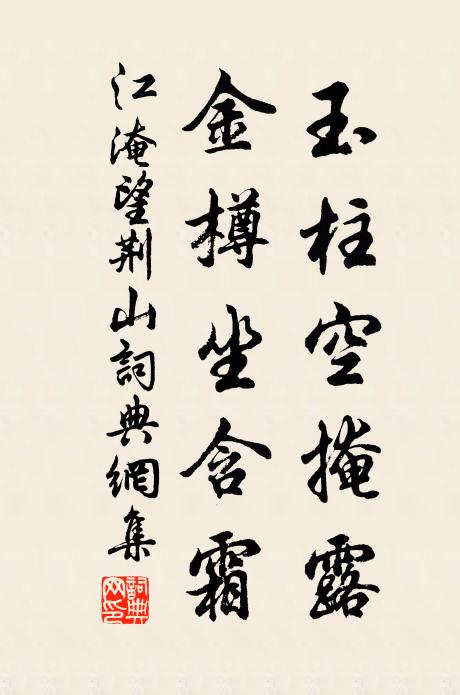 玉柱空掩露
金樽坐含霜
江淹望荆山詞典網集
詞典網印